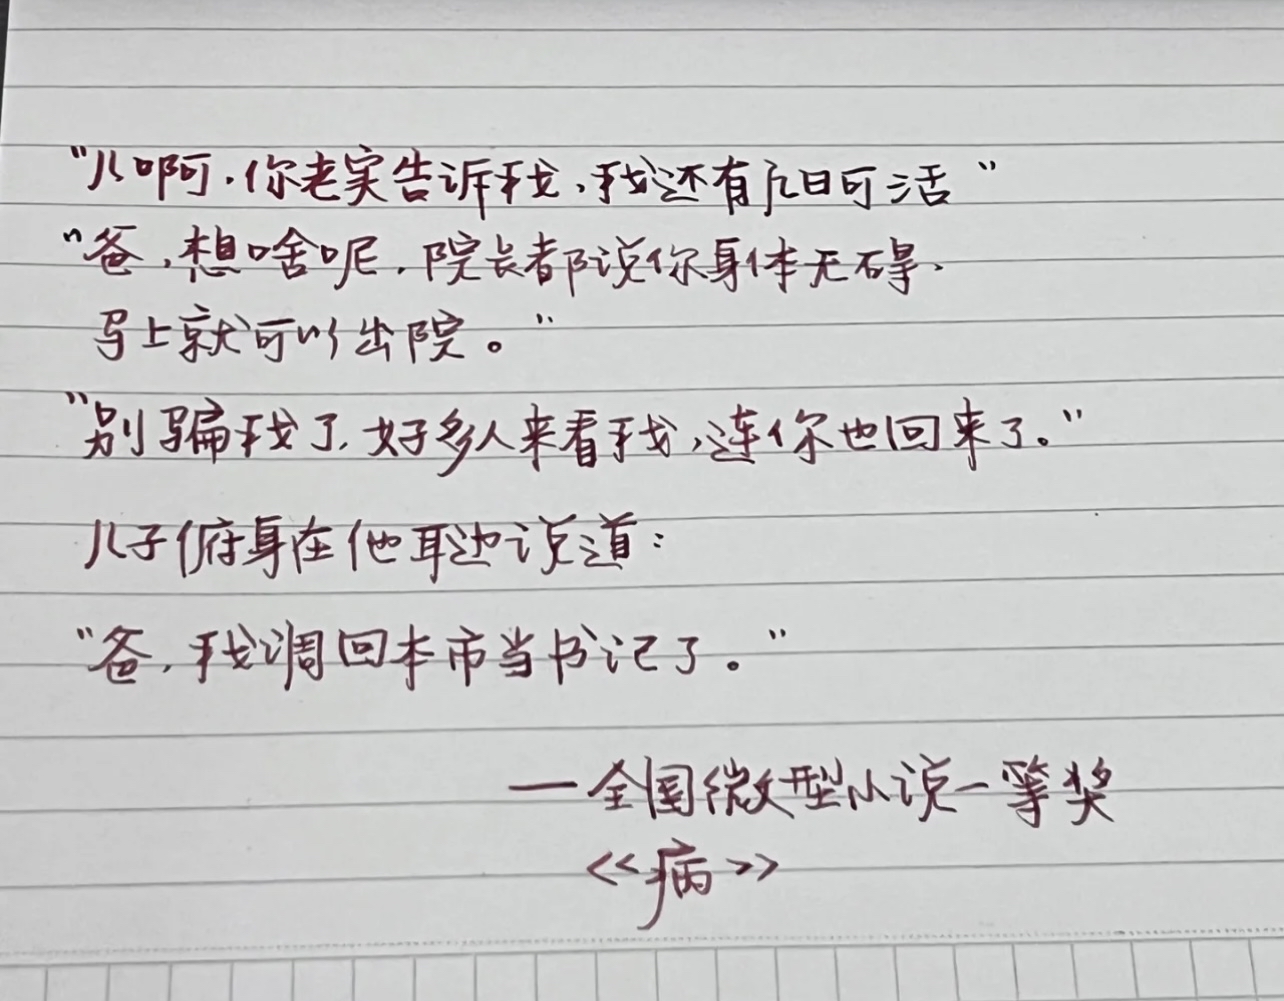 "儿啊,你老实告诉我,我还有几日可活"
"爸,想啥呢,院长都说你身体无碍,
马上就可以出院。"
"别骗我了,好多人来看我,连你也回来了。"
儿子俯身在他耳边说道:
"爸,我调回本市当书记了。"
—全国微型小说一等奖
<<病>>